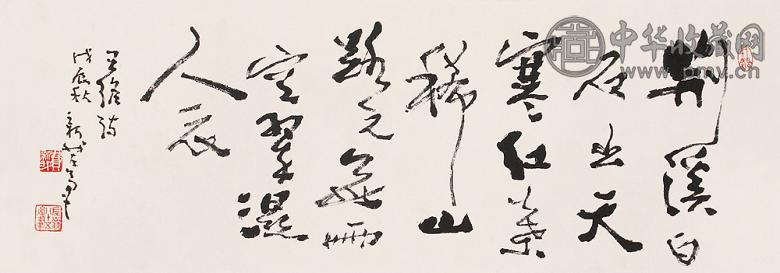 荆溪白
石出天
寒红叶
稀山
路元无雨
空翠湿
人衣
王维诗
戊辰秋
中华收藏网